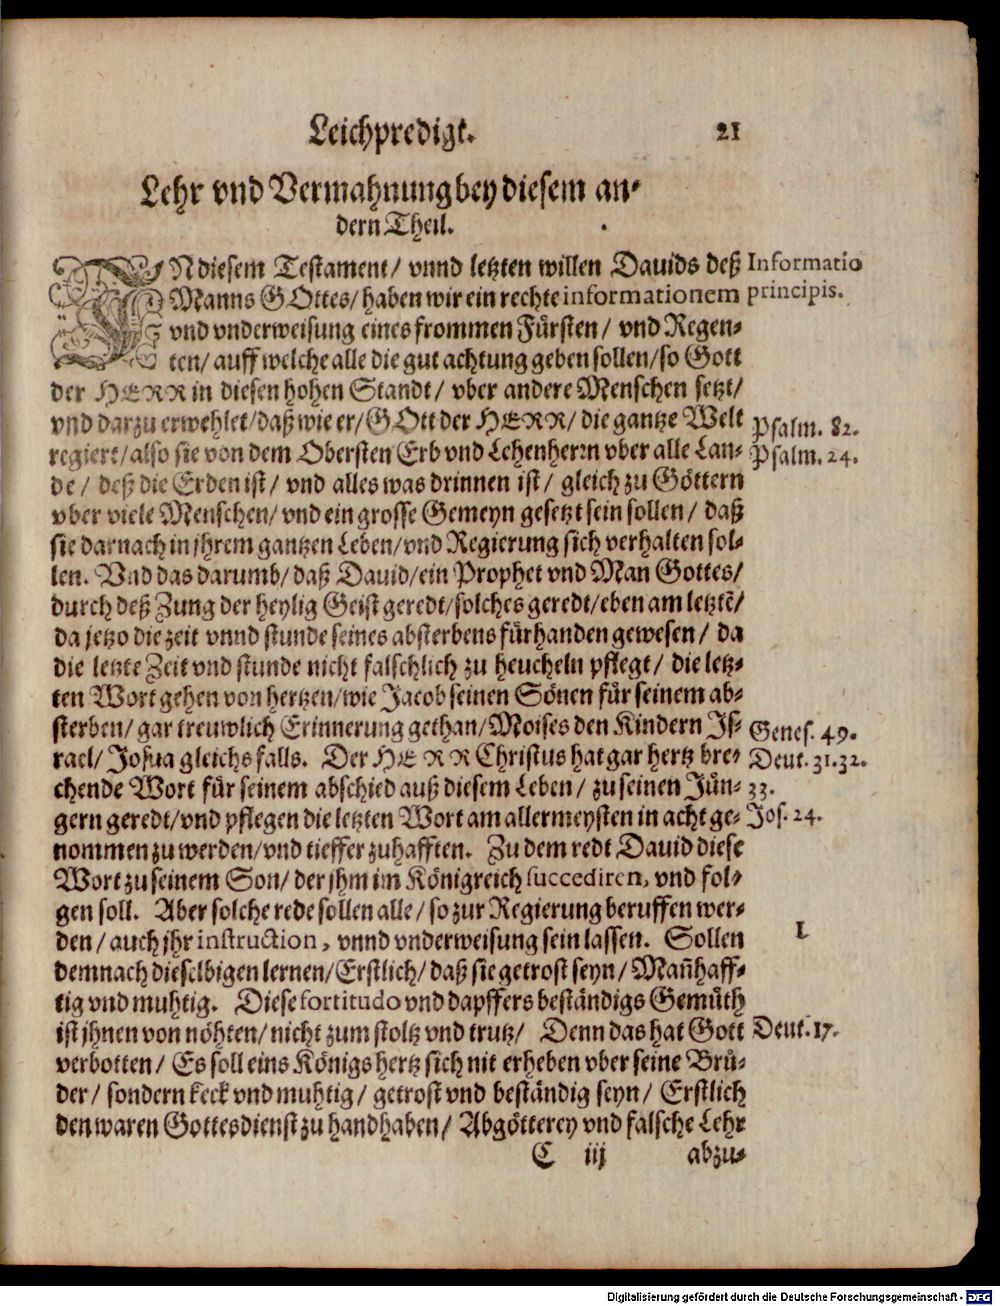 Leichpredigt. 21
Lehr vnd Vermahnung bey diesem an-
dern Theil.
IN diesem Testament / vnnd letzten willen Dauids deß
Manns GOttes / haben wir ein rechte informationem
vnd vnderweisung eines frommen Fürsten / vnd Regen-
ten / auff welche alle die gut achtung geben sollen / so Gott
der HERR in diesen hohen Standt / vber andere Menschen setzt /
vnd darzu erwehlet / daß wie er / GOtt der HERR / die gantze Welt
regiert / also sie von dem Obersten Erb vnd Lehenherrn vber alle Lan-
de / deß die Erden ist / vnd alles was drinnen ist / gleich zu Göttern
vber viele Menschen / vnd ein grosse Gemeyn gesetzt sein sollen / daß
sie darnach in jhrem gantzen Leben / vnd Regierung sich verhalten sol-
len. Vnd das darumb / daß Dauid / ein Prophet vnd Man Gottes /
durch deß Zung der heylig Geist geredt / solches geredt / eben am letztẽ /
da jetzo die zeit vnnd stunde seines absterbens fürhanden gewesen / da
die letzte Zeit vnd stunde nicht falschlich zu heucheln pflegt / die letz-
ten Wort gehen von hertzen / wie Jacob seinen Sönen für seinem ab-
sterben / gar treuwlich Erinnerung gethan / Moises den Kindern Is-
rael / Josua gleichs falls. Der HERR Christus hat gar hertz bre-
chende Wort für seinem abschied auß diesem Leben / zu seinen Jün-
gern geredt / vnd pflegen die letzten Wort am allermeysten in acht ge-
nommen zu werden / vnd tieffer zu hafften. Zu dem redt Dauid diese
Wort zu seinem Son / der jhm im Königreich succediren, vnd fol-
gen soll. Aber solche rede sollen alle / so zur Regierung beruffen wer-
den / auch jhr instruction, vnnd vnderweisung sein lassen. Sollen
demnach dieselbigen lernen / Erstlich / daß sie getrost seyn / Mañhaff-
tig vnd muhtig. Diese fortitudo vnd dapffers beständigs Gemüth
ist jhnen von nöhten / nicht zum stoltz vnd trutz / Denn das hat Gott
verbotten / Es soll eins Königs hertz sich nit erheben vber seine Brü-
der / sondern keck vnd muhtig / getrost vnd beständig seyn / Erstlich
den waren Gottesdienst zu handhaben / Abgötterey vnd falsche Lehr
C iij abzu-
Informatio
principis.
Psalm. 82.
Psalm. 24.
Genes. 49.
Deut. 31. 32.
33.
Jos. 24.
I.
Deut. 17.
Digitalisierung gefördert durch die Deutsche Forschungsgemeinschaft - DFG